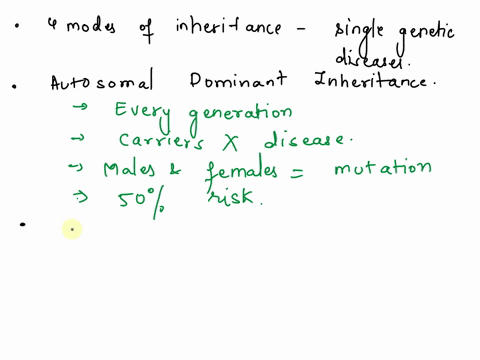 • 4 modes of inheritance - single genetic
diseases.
• Autosomal Dominant Inheritance.
→ Every generation
→ Carriers X disease.
→ Males & females = mutation
→ 50% risk.
•